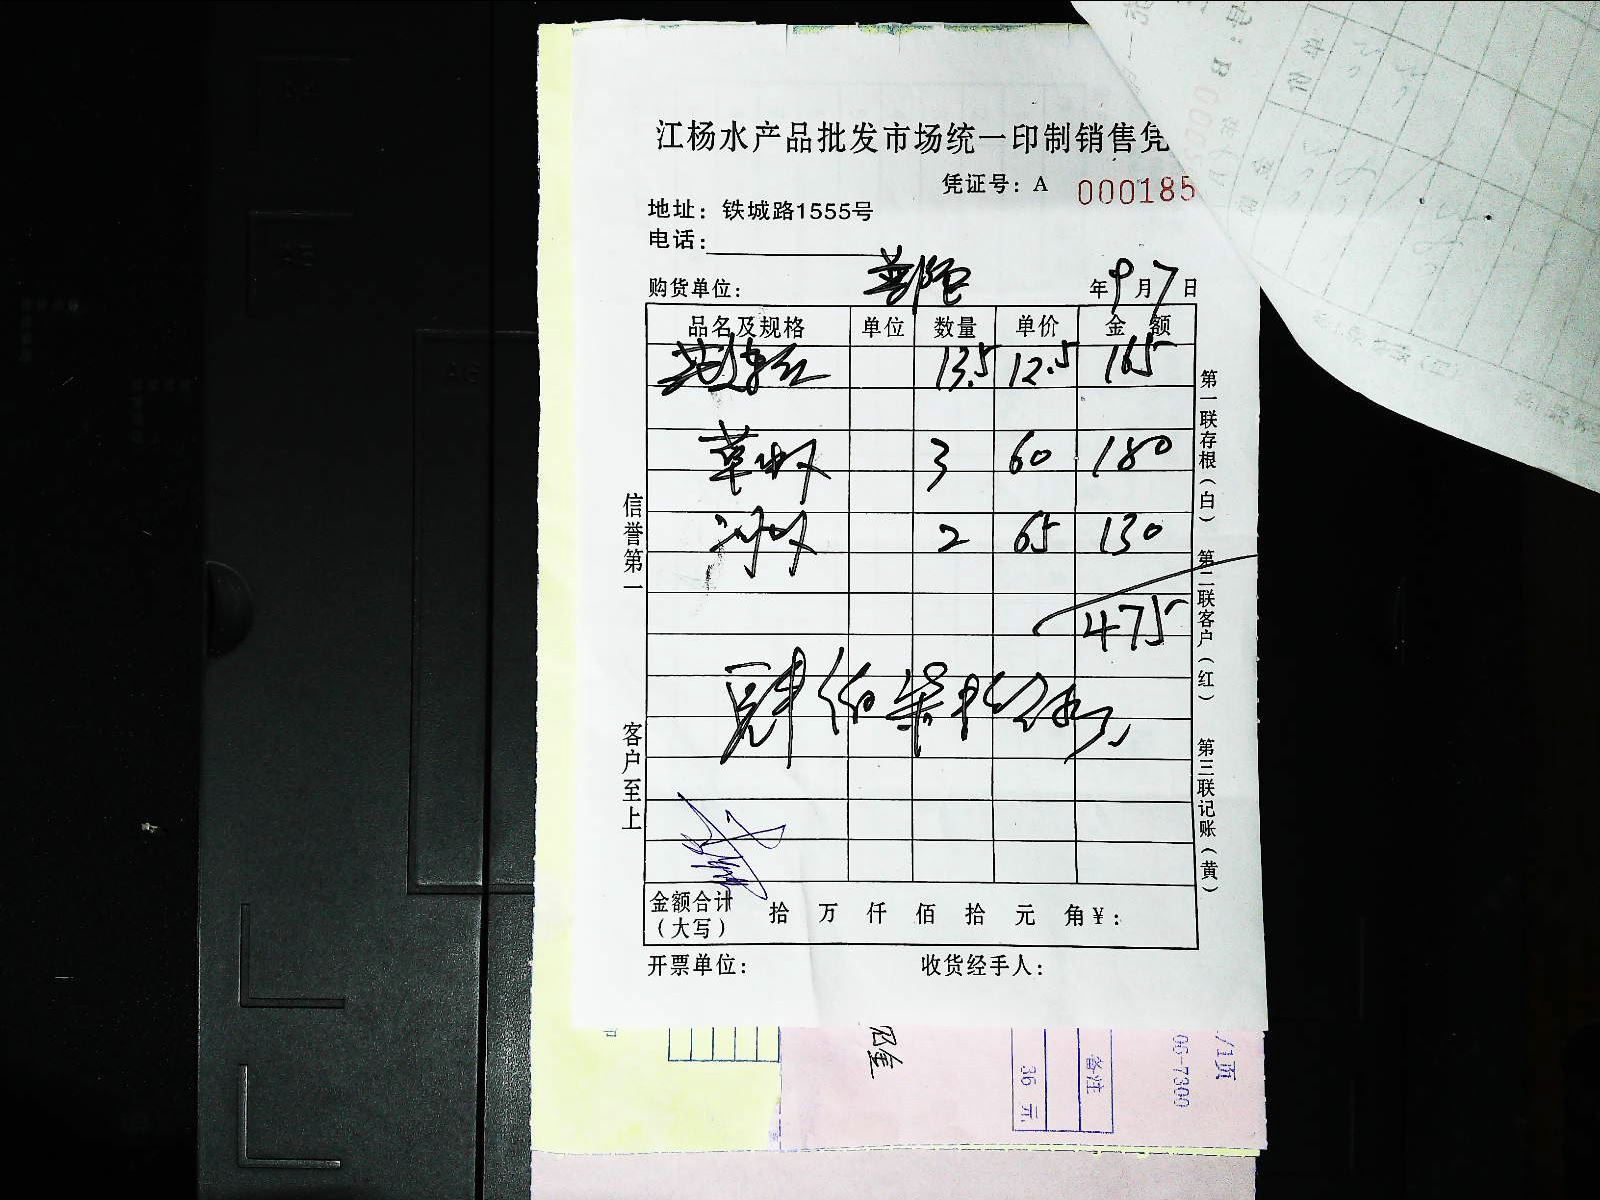 江杨水产品批发市场统一印制销售凭
凭证号：A 000185
地址：铁城路1555号
电话：
购货单位：普陀 年9月7日
品名及规格 单位 数量 单价 金额
13.5 12.5 165
草虾 3 60 180
河虾 2 65 130
475
肆佰柒拾伍元
金额合计（大写） 拾 万 仟 佰 拾 元 角¥：
开票单位： 收货经手人：
信誉第一
客户至上
第一联存根（白）
第二联客户（红）
第三联记账（黄）
备注
36 元
06-7300
/1页